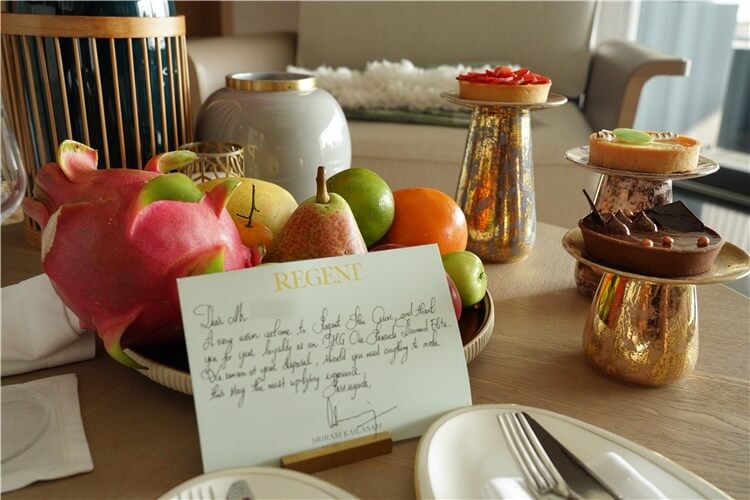 REGENT
Dear Mr
A very warm welcome to Regent Phu Quoc, and thank
you for your loyalty as an IHG One Rewards Diamond Elite.
We remain at your disposal, should you need anything to make
this stay the most uplifting experience.
Best regards,
SRIRAM KAILASAM